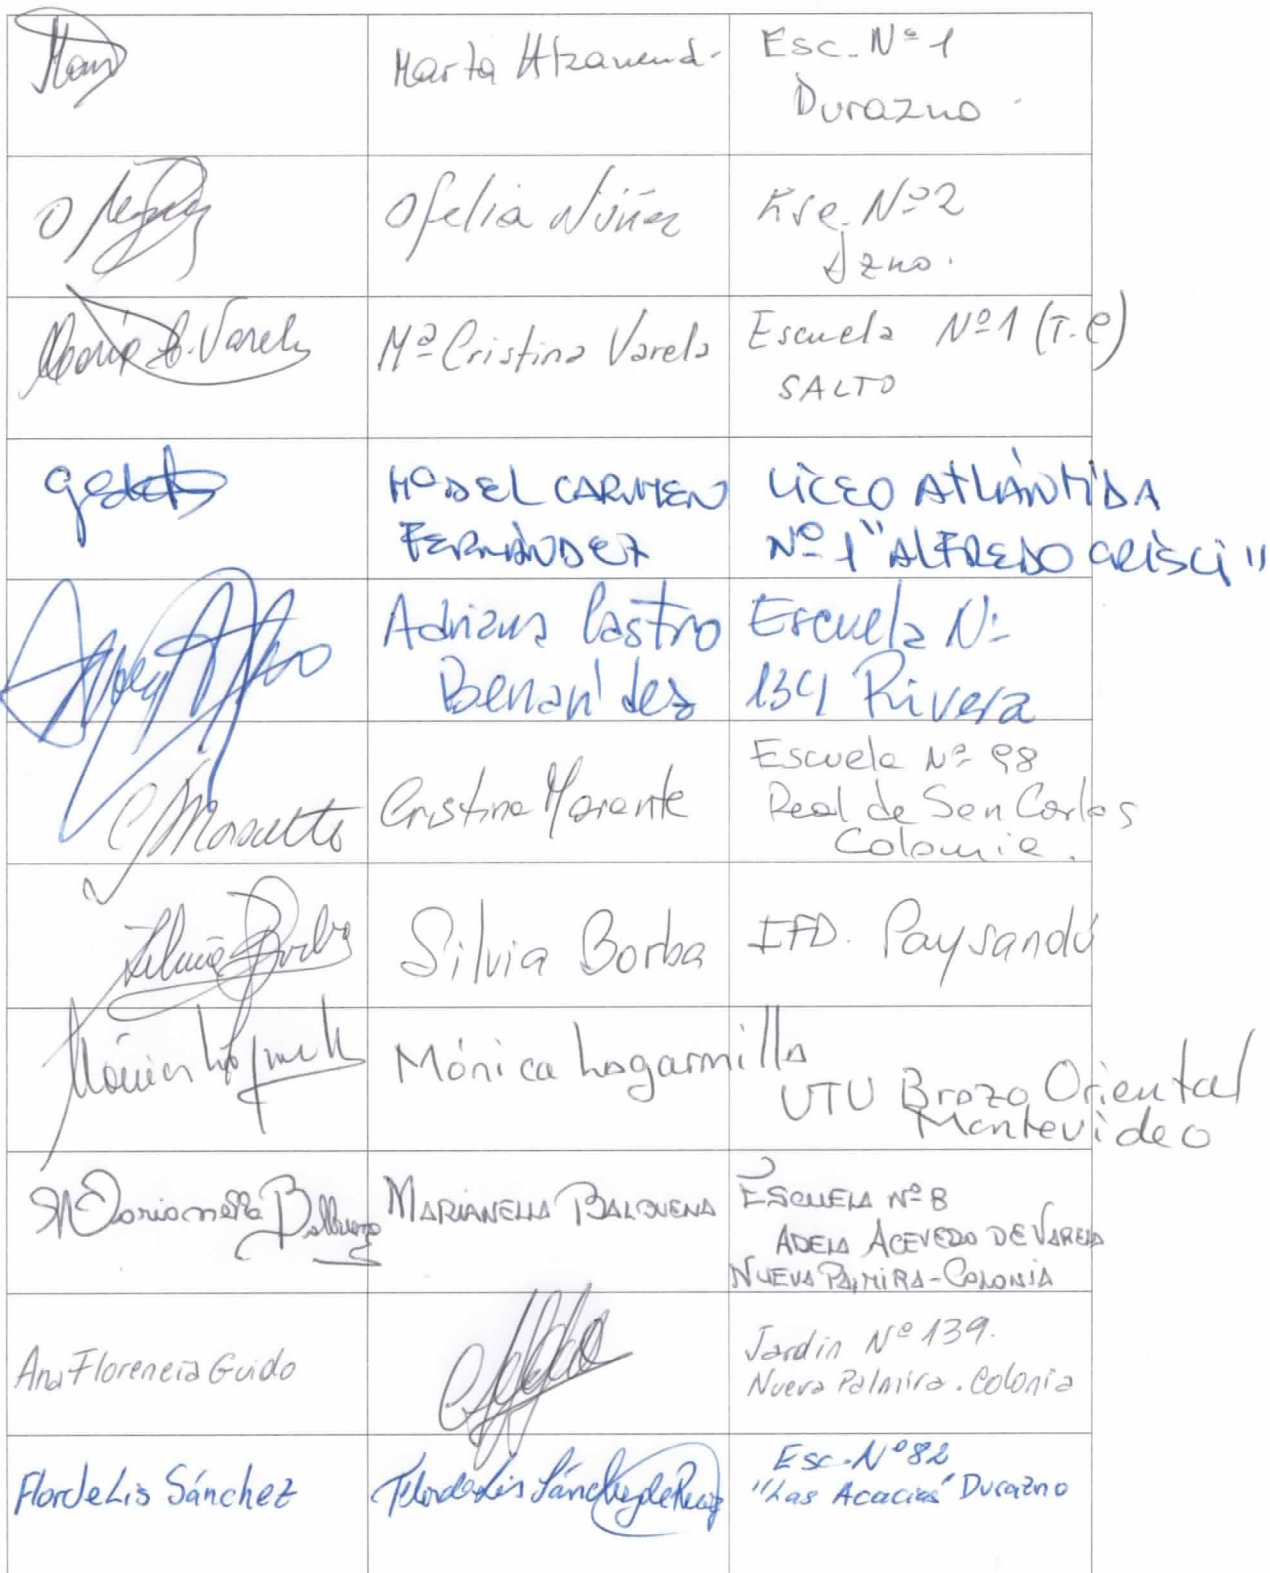 Marta
Esc. Nº 1
Durazno.
Ofelia Núñez
Esc. Nº 2
Dzno.
María C. Varela
Mª Cristina Varela
Escuela Nº 1 (T.C)
SALTO
Mª DEL CARMEN
FERNÁNDEZ
LICEO ATLÁNTIDA
Nº 1 "ALFREDO CRISCI"
Adriana Castro
Escuela Nº
134 Rivera
Cristina
Escuela Nº 98
Real de San Carlos
Colonia.
Silvia Borba
Silvia Borba
IFD. Paysandú
Mónica
Mónica Logarmilla
UTU Brazo Oriental
Montevideo
Marianella Balbuena
MARIANELLA BALBUENA
ESCUELA Nº 8
ADELA ACEVEDO DE VARELA
NUEVA PALMIRA - COLONIA
Ana Florencia Guido
Jardín Nº 139.
Nueva Palmira. Colonia
Flor de Lis Sánchez
Flor de Lis Sánchez de Ruiz
Esc. Nº 82
"Las Acacias" Durazno